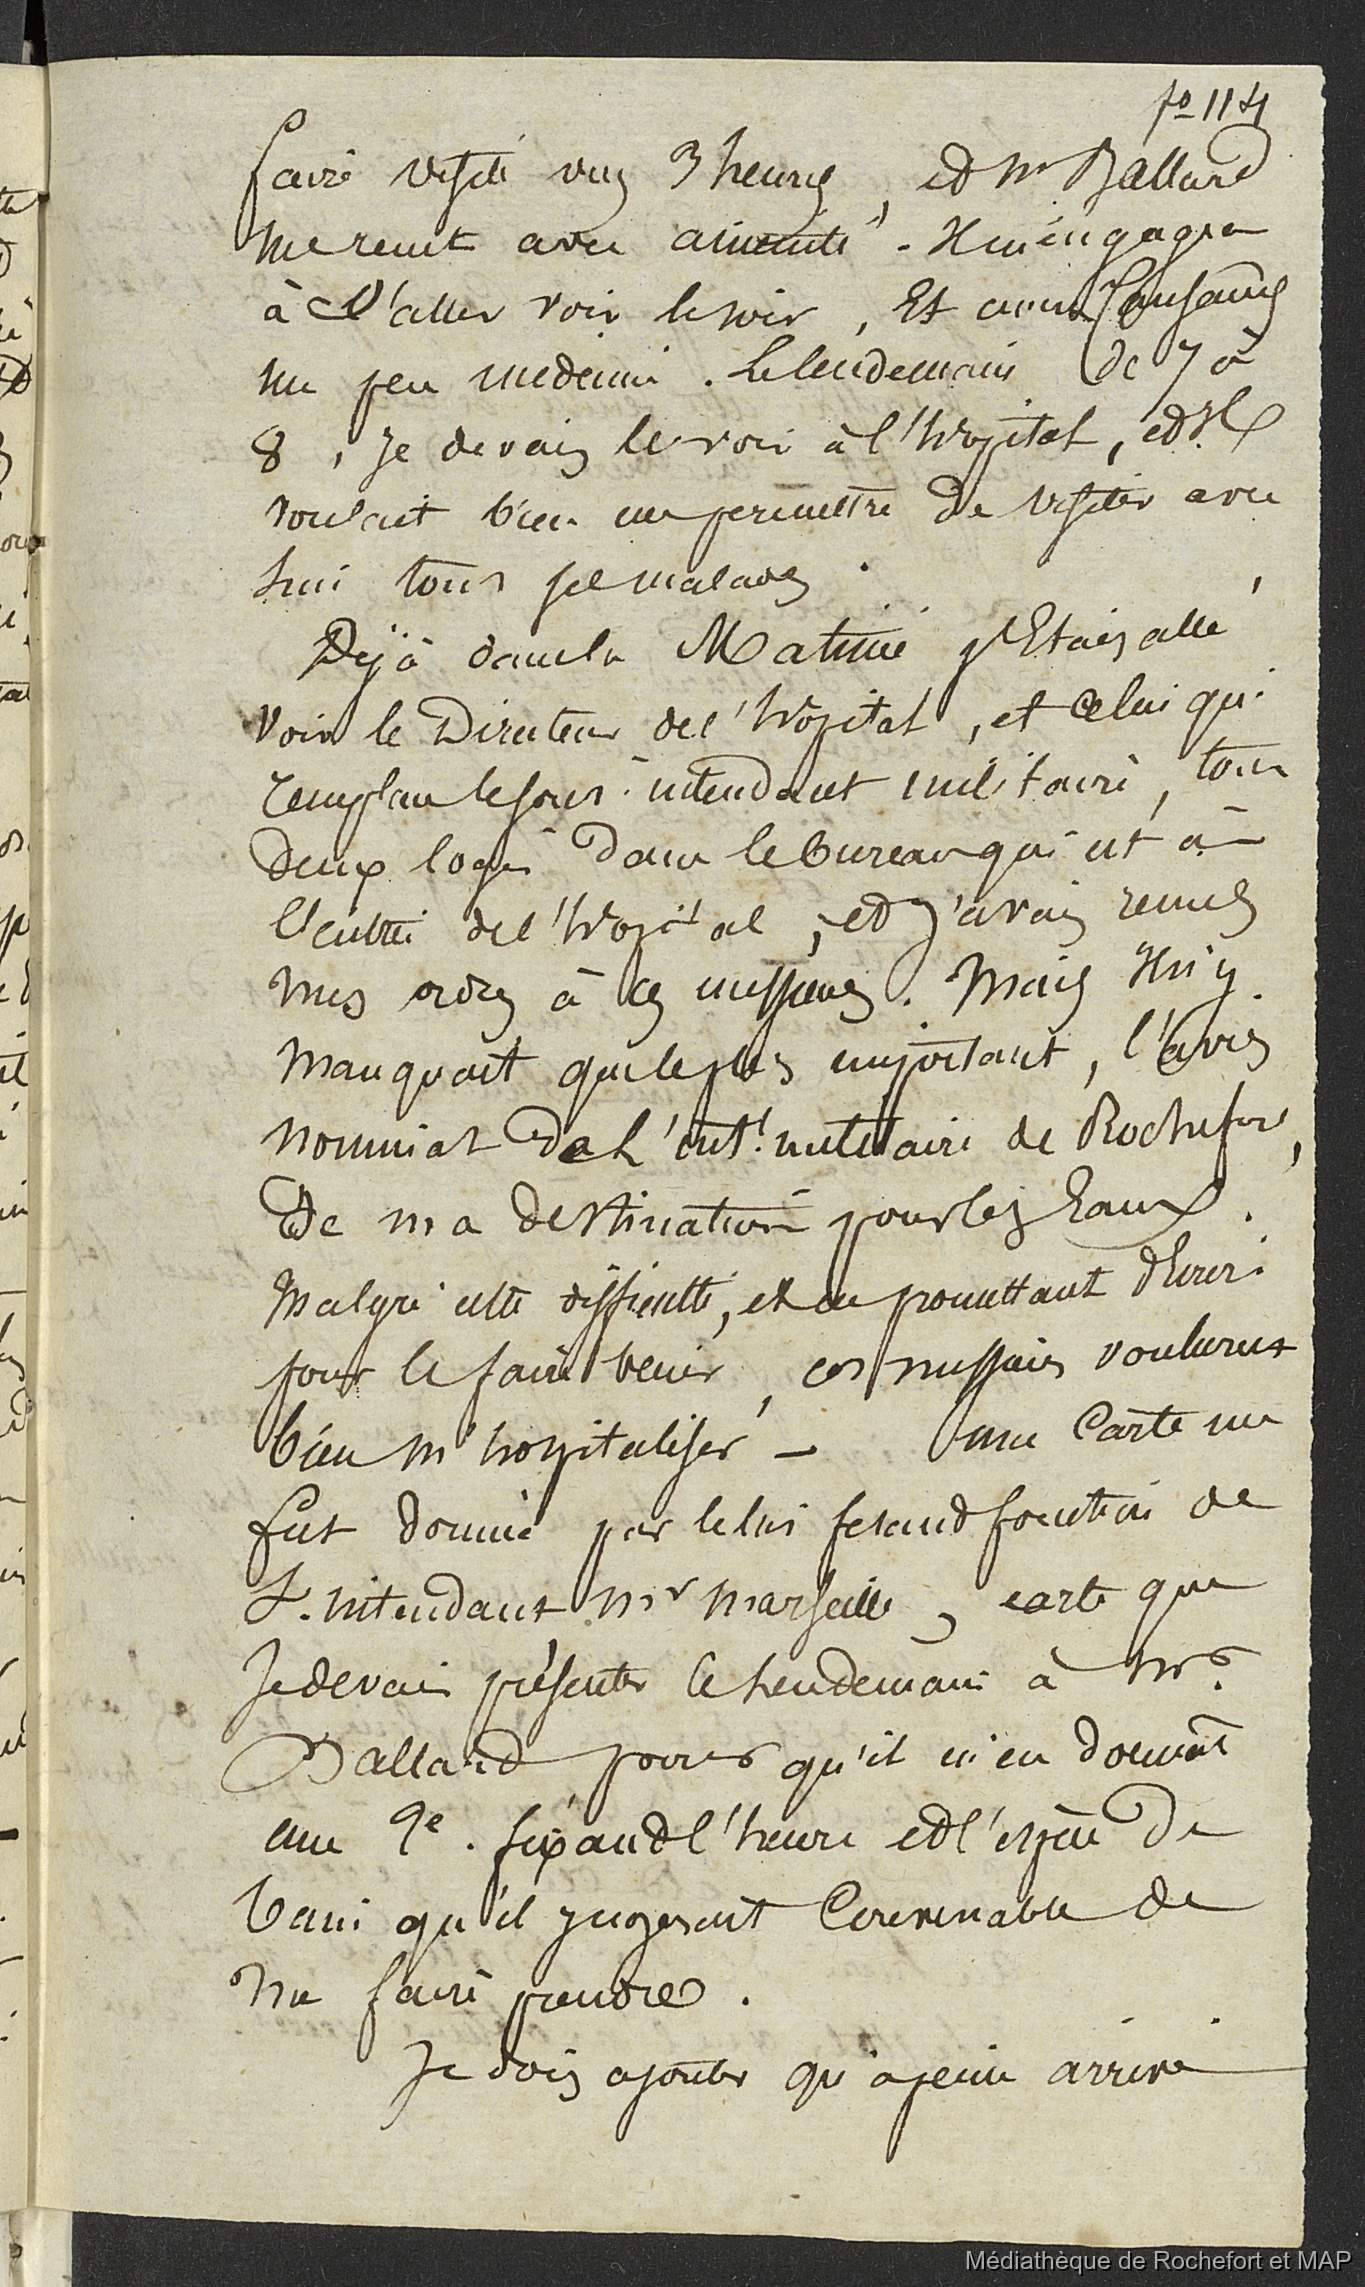 fo 114
faire visite vers 3 heures, et Mr Ballard
me reçut avec aménité. Il m'engagea
à l'aller voir le soir, Et nous causames
un peu médecine. Le lendemain de 7 à
8, je devais le voir à l'hôpital, et Il
voulait bien me permettre de visiter avec
lui tous ses malades.
Déjà dans la Matinée j'Etais allé
voir le Directeur de l'hôpital, et celui qui
remplace le sous-intendant militaire, tous
deux logés dans le bureau qui est à
l'entrée de l'hôpital; et j'avais remis
mes ordres à ces messieurs. Mais Il n'y
manquait que le plus important, l'avis
nominat de l'int. militaire de Rochefort,
De ma destination pour les Eaux.
Malgré cette difficulté, et en promettant d'Ecrire
pour le faire venir, ces messieurs voulurent
bien m'hospitaliser — une carte me
fut donnée par celui fesand fonction de
S. intendant Mr Marseille, carte que
Je devais présenter le lendemain à Mr
Ballard pour qu'il m'en donnât
une 2e. fixand l'heure et l'espèce de
bain qu'il jugerait convenable de
me faire prendre.
Je dois ajouter qu'a peine arrivé
Médiathèque de Rochefort et MAP